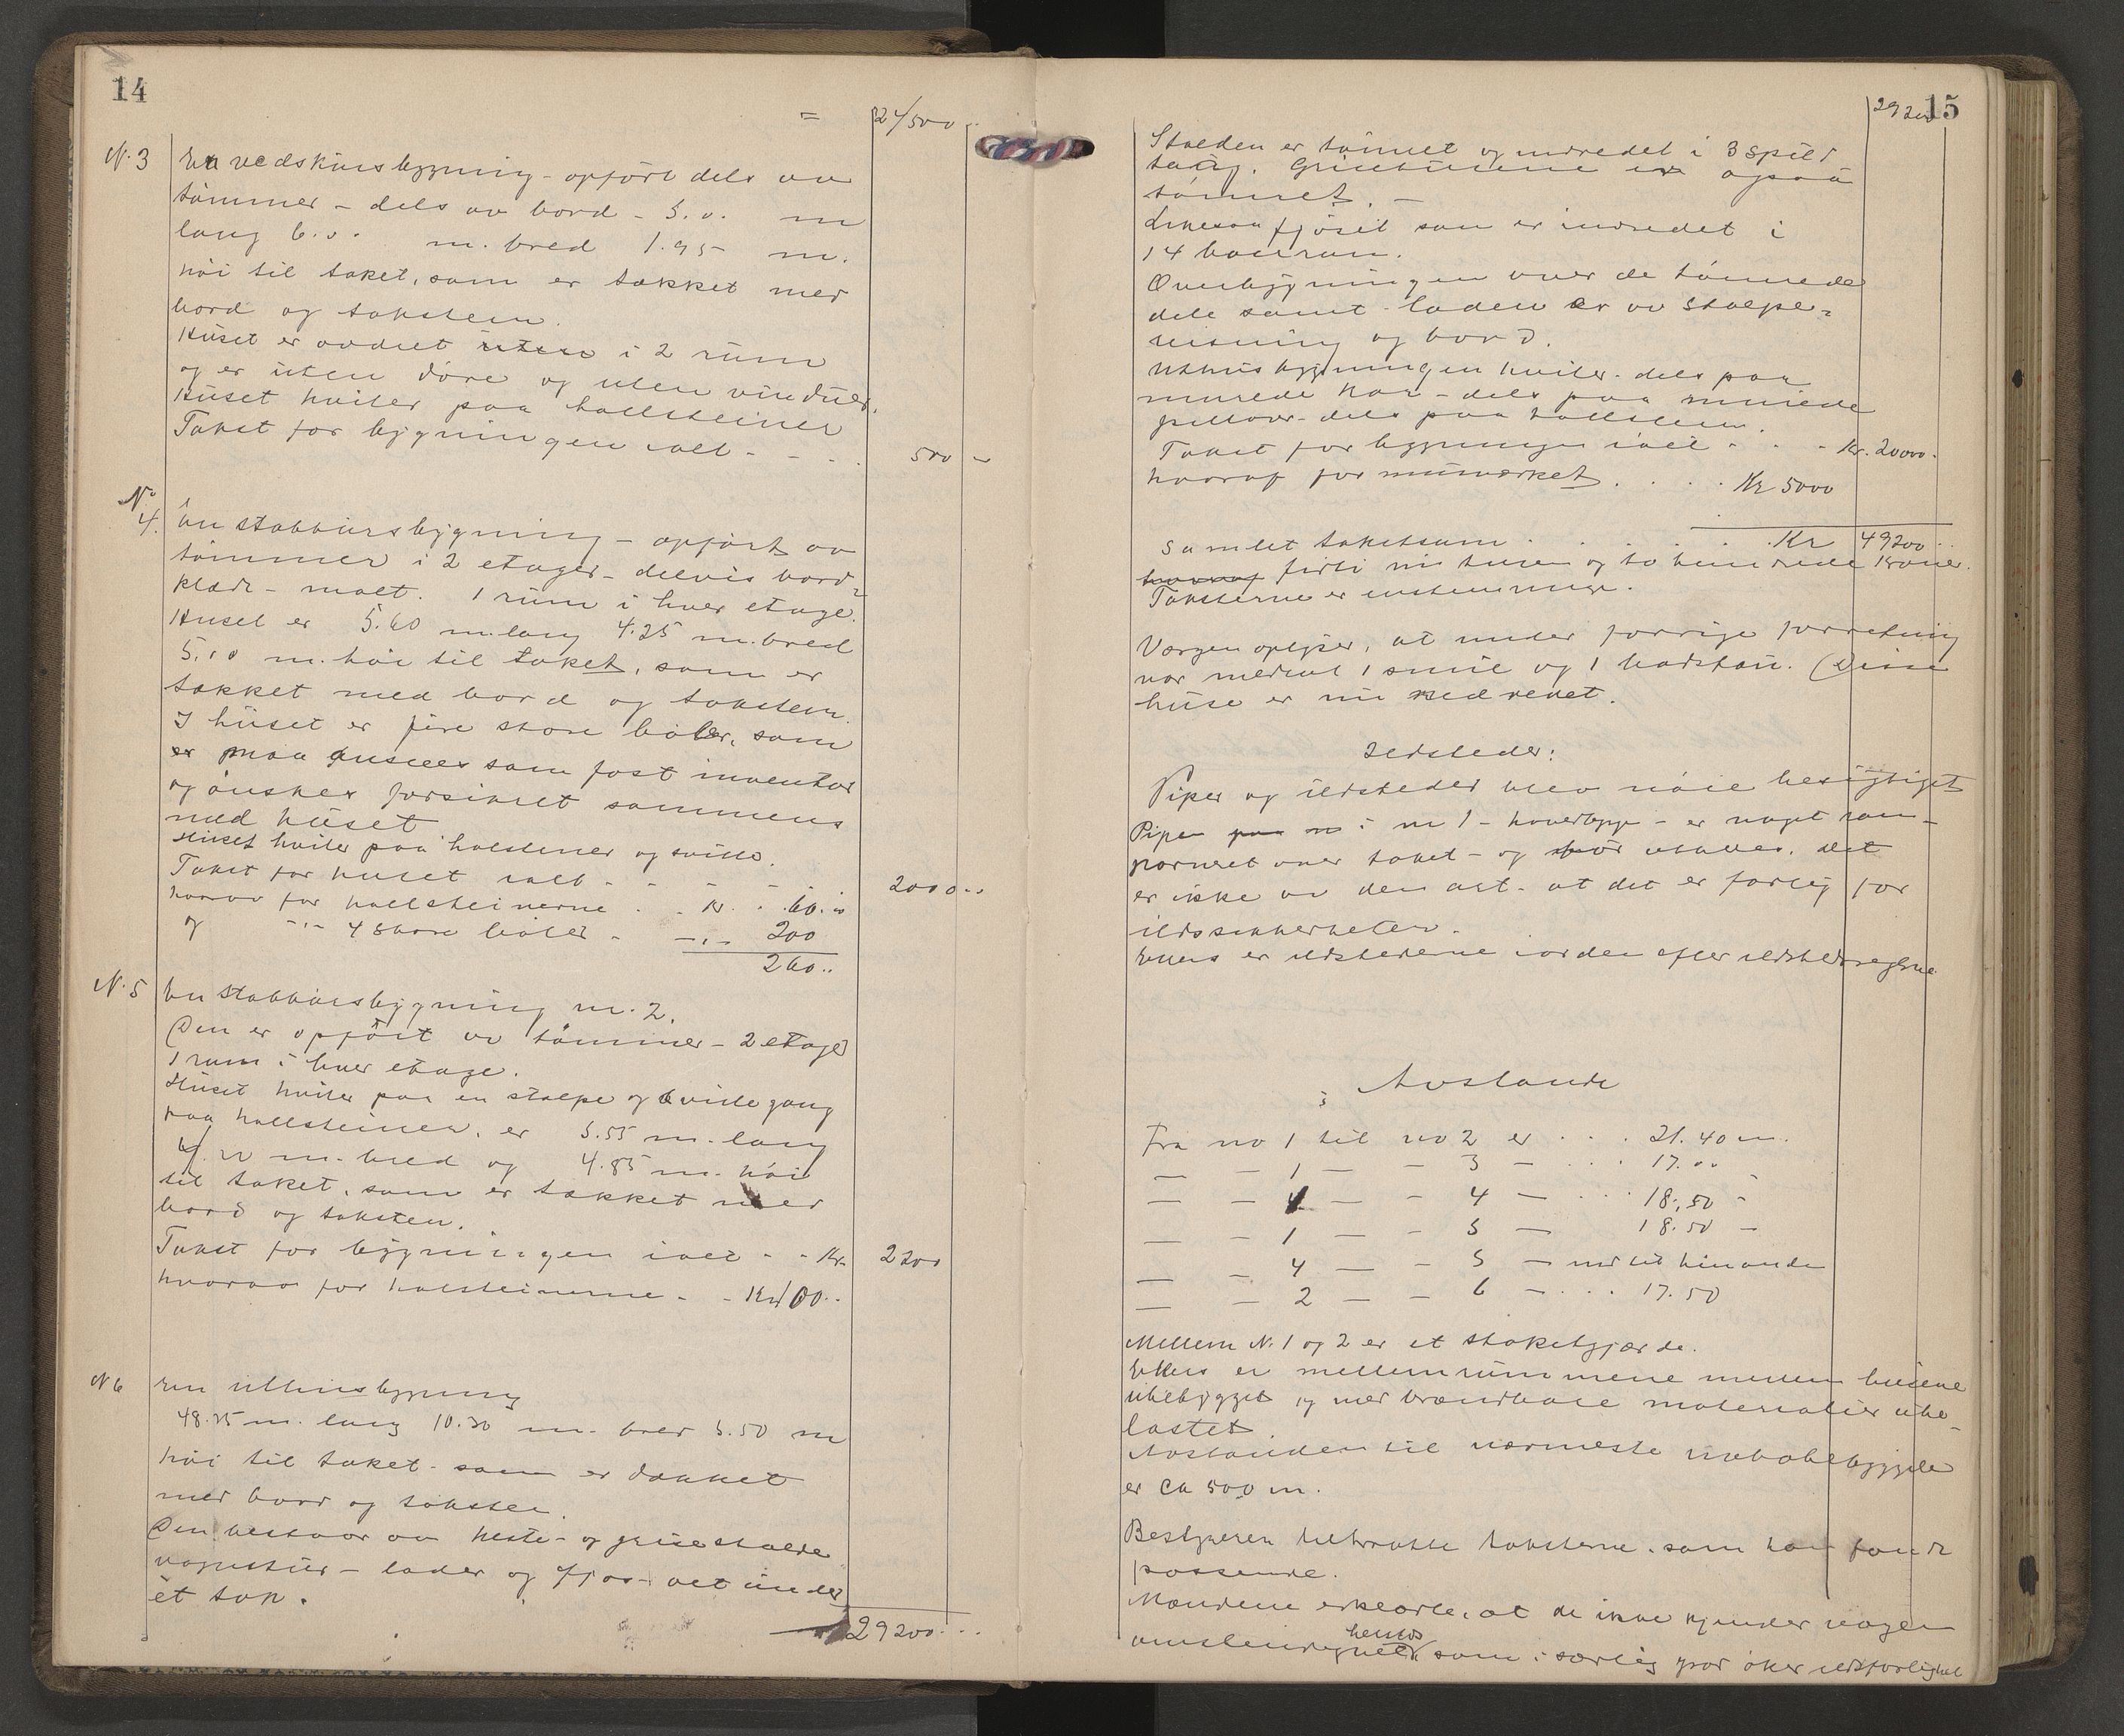 14
= 24500 -
N. 3 En vedskursbygning - opført dels av
tømmer - dels av bord - 5.0. m
lang 6.0. m. bred 1.95 m.
høi til taket, som er tækket med
bord og takstein.
Huset er avdelt i 2 rum
og er uten døre og uten vinduer.
Huset hviler paa hallsteiner
Takst for bygningen ialt - - - . 500 -
No 4. En stabbursbygning - opført av
tømmer i 2 etager - delvis bord
klædt - malt. 1 rum i hver etage.
Huset er 5.60 m. lang 4.25 m. bred
5.00 m. høi til taket, som er
tækket med bord og takstein.
I huset er fire store bøler, som
er maa ansees som fast inventar
og ønskes forsikret sammens
med huset
Huset hviler paa halsteiner og sville.
Takst for huset ialt - - - - - 2000..
hvorav for hallsteinerne . . kr. . 60.00
og -"- 4 store bøler - -"- 200
260..
N. 5 En stabbursbygning nr. 2.
Den er opført av tømmer - 2 etager
1 rum i hver etage.
Huset hviler paa en stolpe og svillegang
paa hallsteiner, er 5.55 m. lang
m. bred og 4.85 m. høi
til taket, som er tækket med
bord og taksten.
Takst for bygningen ialt - - Kr. 2200
hvorav for halsteinerne - - Kr 100..
N 6 En uthusbygning
48.25 m. lang 10.30 m. bred 5.50 m
høi til taket - som er dækket
med bord og taksten.
Den bestaar av heste- og grisestalde
vognskur - lader og fjøs - alt under
ét tak.
29200...
15
29200
Stalden er tømret og indredet i 3 spild
taug. Grisehusene er ogsaa
tømret. -
Likesaa fjøset som er indredet i
14 baasrum.
Overbygningen over de tømrede
dele samt laden er av stolpe=
reisning og bord.
Uthusbygningen hviler - dels paa
murede kar - dels paa murede
pillarer - dels paa hallstein.
Takst for bygningen ialt - - - Kr. 20000.
hvoraf for murværket . . . . Kr 5000
Samlet takstsum . . . . . . Kr 49200..
hvoraf firti ni tusen og to hundrede kroner.
Taksterne er enstemmige.
Værgen oplyser, at under forrige forretning
var medtat 1 smie og 1 badstau. Disse
huse er nu nedrevet.
Ildsteder:
Piper og ildsteder blev nøie besigtiget
Pipen i nr 1 - hovedbygn - er noget ram-
poneret over taket - og bør utbedres. Det
er ikke av den art - at det er farlig for
ildssikkerheten.
Ellers er ildstederne i orden efter ildstedsreglerne
Avstande
Fra no 1 til no 2 er . . . 21.40 m.
— - 1 — - 3 — . . . 17.00 -
— - 1 — - 4 — . . . 18.50 -
— - 1 — - 5 — 18.50 -
— - 4 — - 5 — ind til hinanden
— - 2 — - 6 — . . . 17.50
Mellem N. 1 og 2 er et stakitgjærde.
Ellers er mellemrummene mellem husene
ubebygget og med brændbare materialier ube-
lastet.
Avstanden til nærmeste nabobebyggelse
er ca 500 m.
Bestyreren tiltraatte taksterne, som han fandt
passende.
Mændene erklærte, at de ikke kjender nogen
omstendighet som i særlig grad øker ildsfarlighet